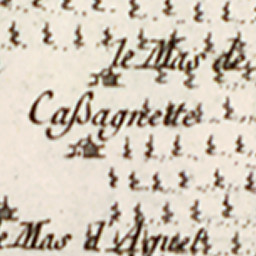 le Mas de
Caßagnette
e Mas d'Ayquet